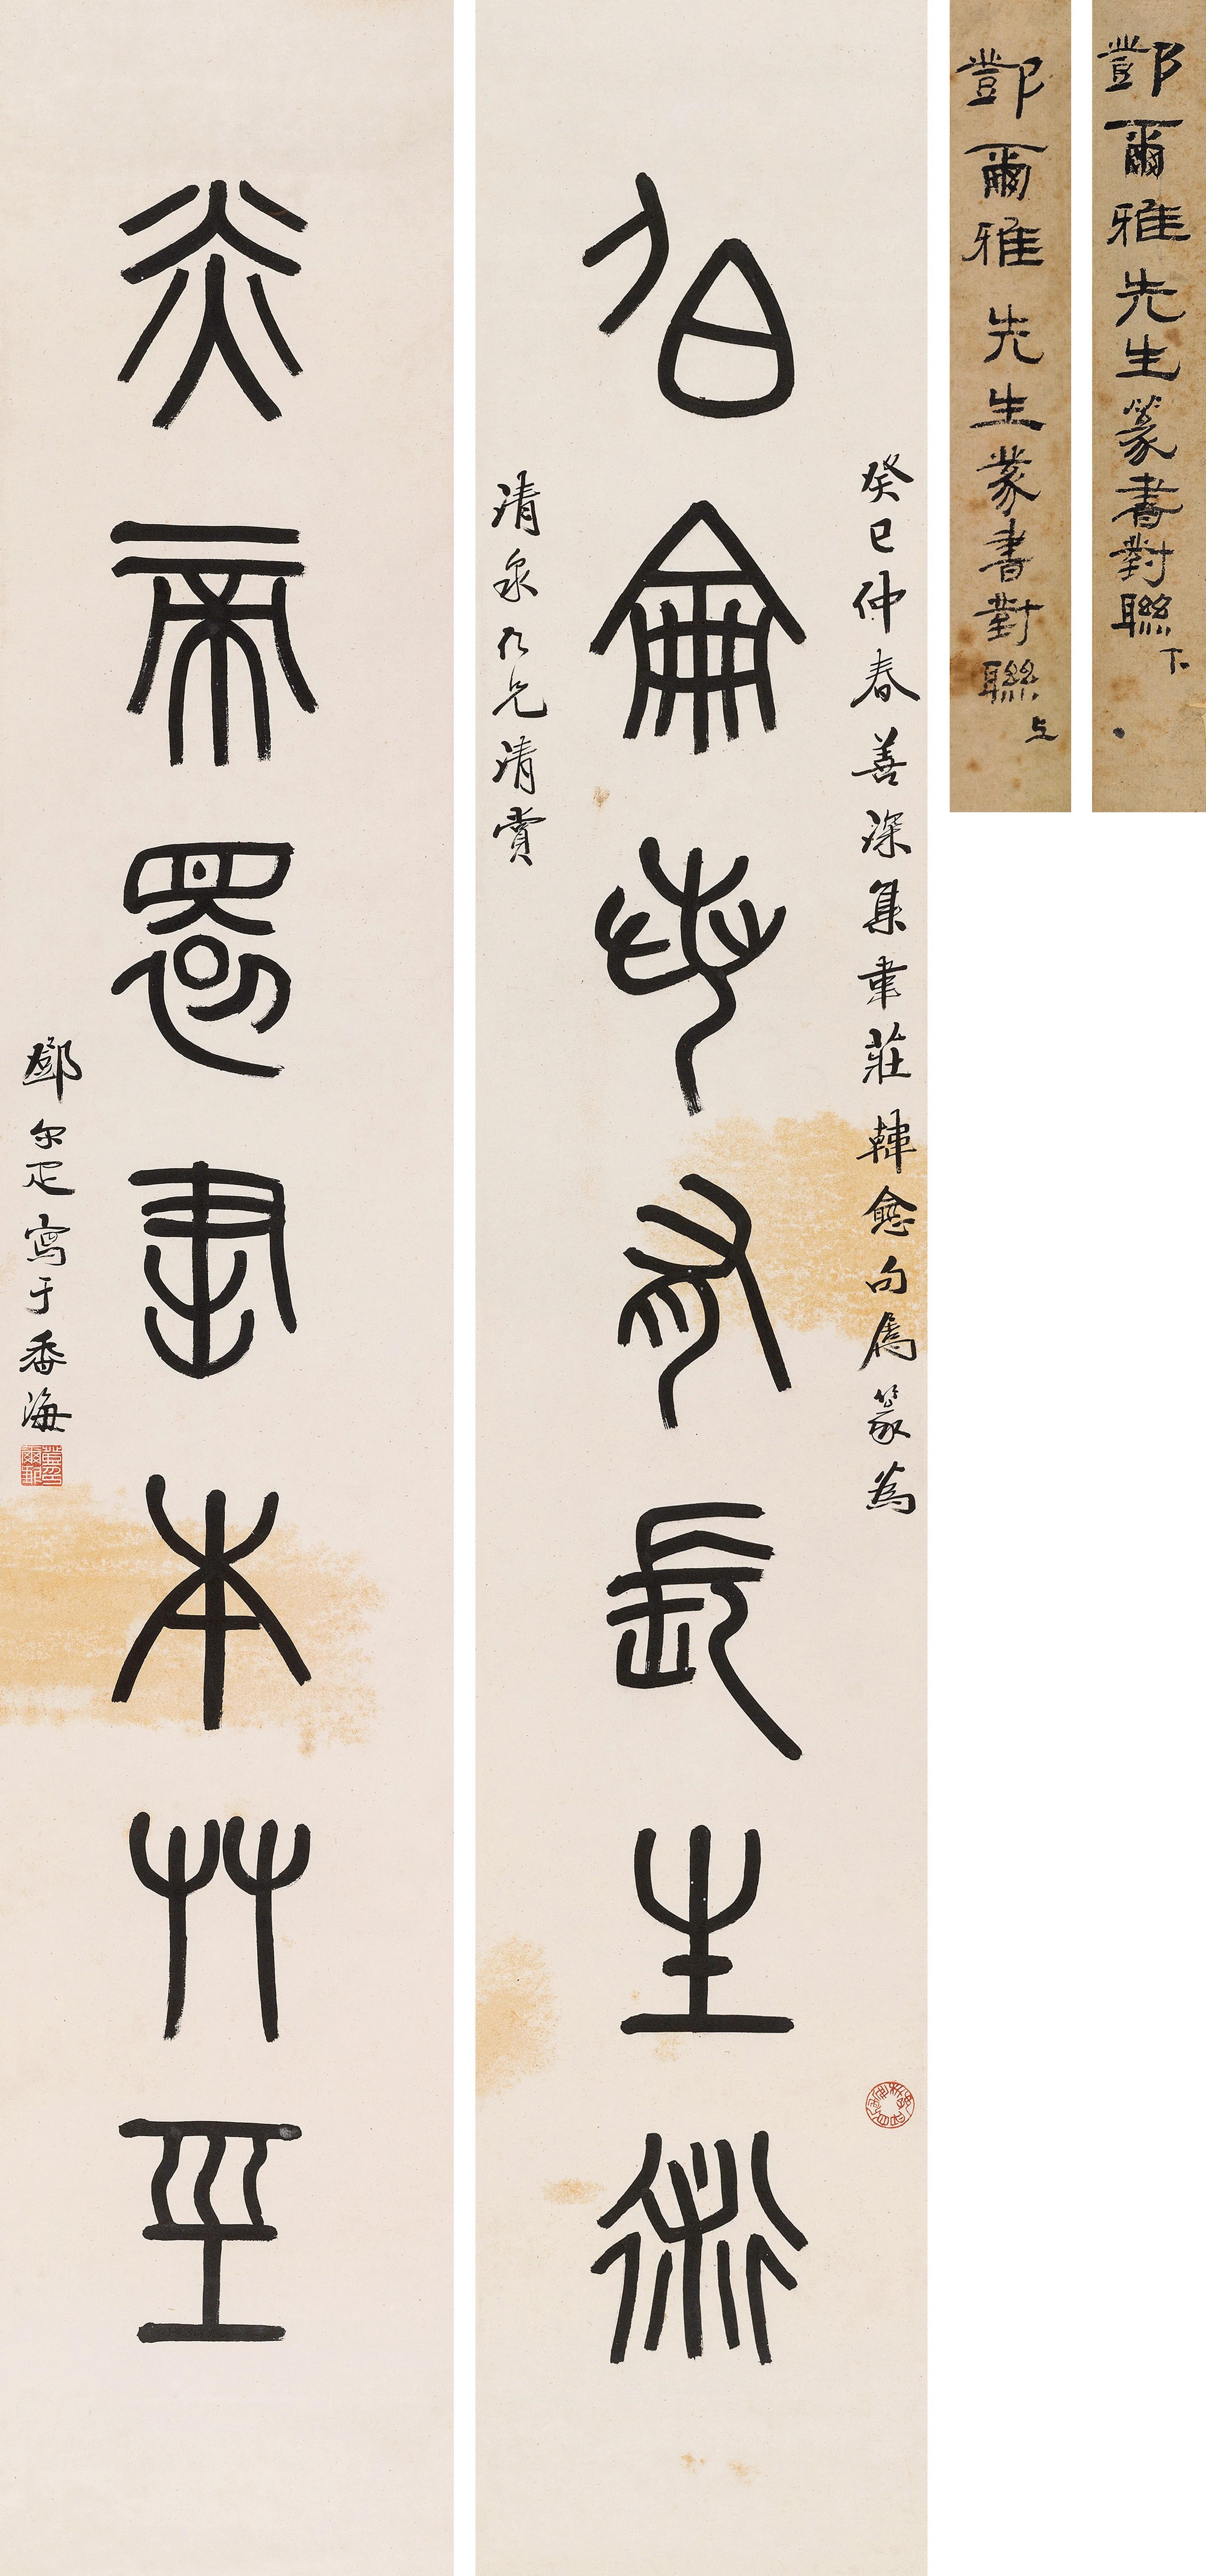 鄧爾雅先生篆書對聯 下
鄧爾雅先生篆書對聯 上
癸巳仲春善深集韋莊韓愈句屬篆為
伯侖若有長生術
清泉仁兄清賞
炎帝還書本艸巠
鄧尔疋寫于番海